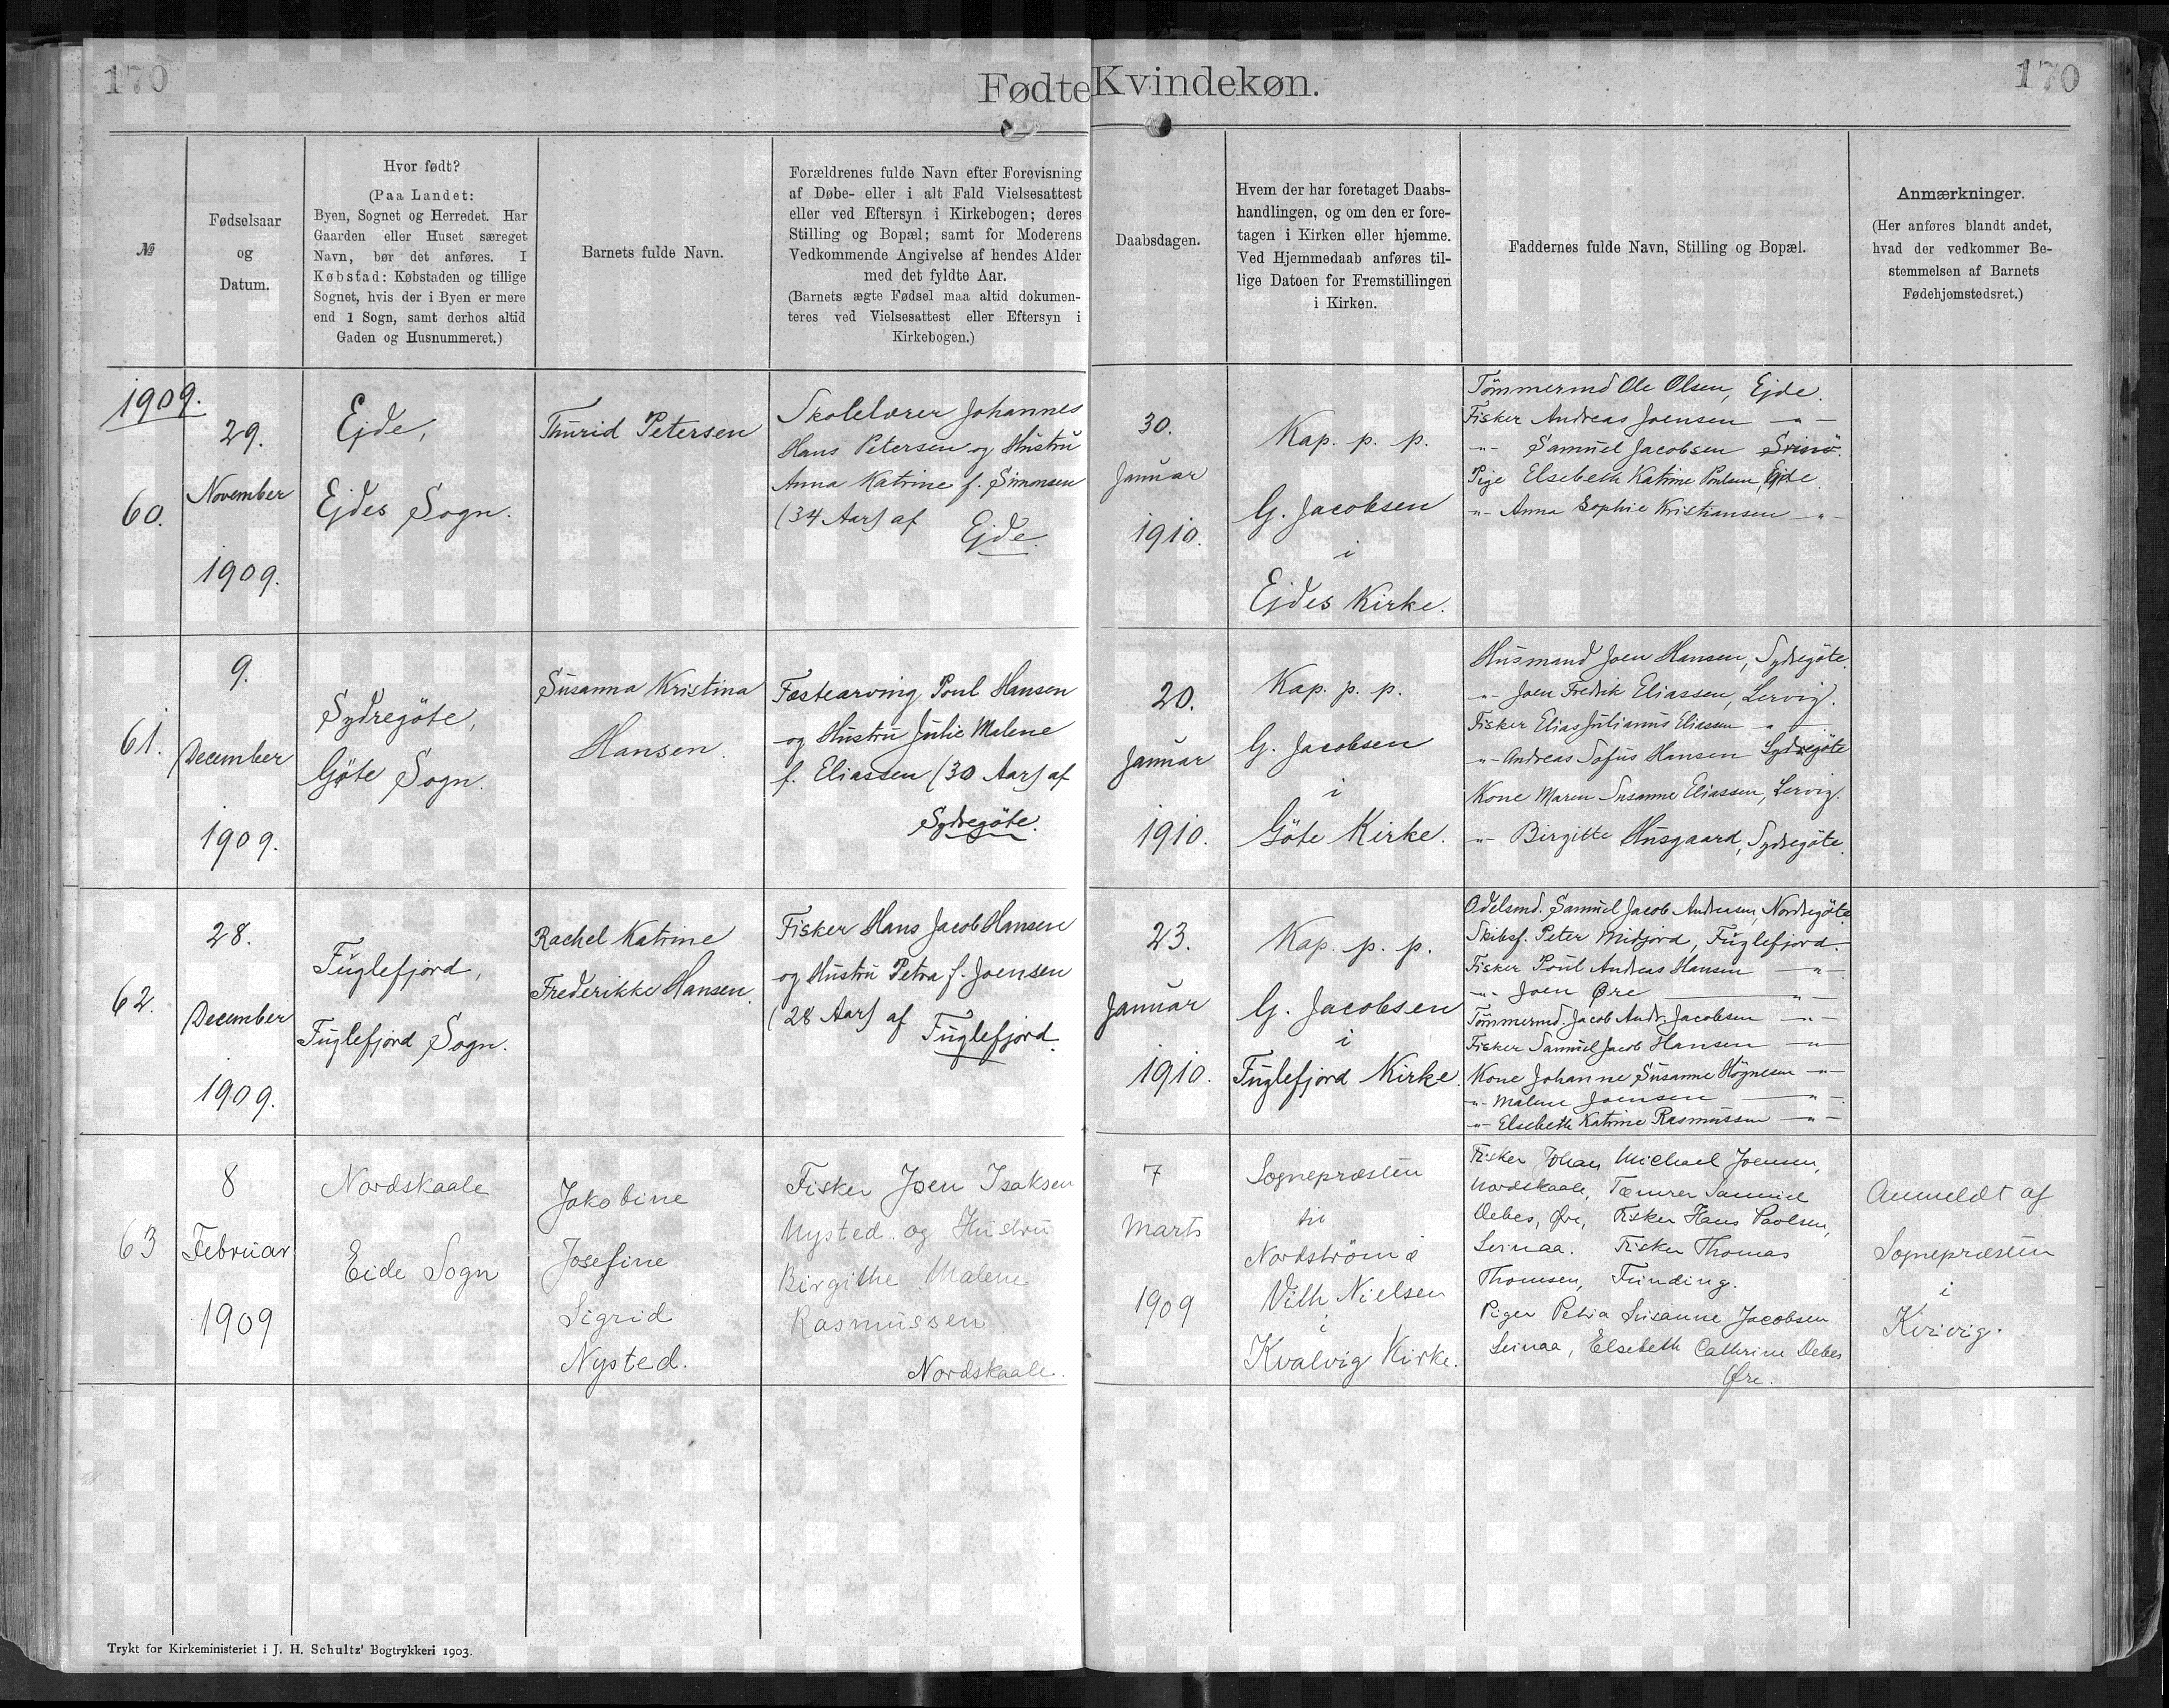 170
Fødte Kvindekøn.
170
№
Fødselsaar
og
Datum.
Hvor født?
(Paa Landet:
Byen, Sognet og Herredet. Har
Gaarden eller Huset særeget
Navn, bør det anføres. I
Købstad: Købstaden og tillige
Sognet, hvis der i Byen er mere
end 1 Sogn, samt derhos altid
Gaden og Husnummeret.)
Barnets fulde Navn.
Forældrenes fulde Navn efter Forevisning
af Døbe- eller i alt Fald Vielsesattest
eller ved Eftersyn i Kirkebogen; deres
Stilling og Bopæl; samt for Moderens
Vedkommende Angivelse af hendes Alder
med det fyldte Aar.
(Barnets ægte Fødsel maa altid dokumen-
teres ved Vielsesattest eller Eftersyn i
Kirkebogen.)
Daabsdagen.
Hvem der har foretaget Daabs-
handlingen, og om den er fore-
tagen i Kirken eller hjemme.
Ved Hjemmedaab anføres til-
lige Datoen for Fremstillingen
i Kirken.
Faddernes fulde Navn, Stilling og Bopæl.
Anmærkninger.
(Her anføres blandt andet,
hvad der vedkommer Be-
stemmelsen af Barnets
Fødehjemstedsret.)
1909.
60.
29.
November
1909.
Ejde,
Ejdes Sogn.
Thurid Petersen
Skolelærer Johannes
Hans Petersen og Hustru
Anna Katrine f. Simonsen
(34 Aar) af
Ejde.
30.
Januar
1910.
Kap. p. p.
G. Jacobsen
i
Ejdes Kirke.
Tömmermd Ole Olsen, Ejde.
Fisker Andreas Joensen -"-
-"- Samuel Jacobsen Svinö.
Pige Elsebeth Katrine Poulsen, Ejde.
-"- Anna Sophie Kristiansen -"-
61.
9.
December
1909.
Sydregöte,
Göte Sogn.
Susanna Kristina
Hansen.
Fæstearving Poul Hansen
og Hustru Julie Malene
f. Eliassen (30 Aar) af
Sydregöte.
20.
Januar
1910.
Kap. p. p.
G. Jacobsen
i
Göte Kirke.
Husmand Joen Hansen, Sydregöte.
-"- Joen Fredrik Eliassen, Lervig.
Fisker Elias Julianus Eliassen -"-
-"- Andreas Sofus Hansen Sydregöte
Kone Maren Susanne Eliassen, Lervig.
-"- Birgitte Husgaard, Sydregöte.
62.
28.
December
1909.
Fuglefjord,
Fuglefjord Sogn.
Rachel Katrine
Frederikke Hansen.
Fisker Hans Jacob Hansen
og Hustru Petra f. Joensen
(28 Aar) af
Fuglefjord.
23.
Januar
1910.
Kap. p. p.
G. Jacobsen
i
Fuglefjord Kirke.
Odelsmd. Samuel Jacob Andersen, Nordregöte.
Skibsf. Peter Midjord, Fuglefjord.
Fisker Poul Andreas Hansen -"-
-"- Joen Øre -"-
Tömmermd. Jacob Andr. Jacobsen -"-
Fisker Samuel Jacob Hansen -"-
Kone Johanne Susanne Högnesen -"-
-"- Malene Joensen -"-
-"- Elsebeth Katrine Rasmussen -"-
63
8
Februar
1909
Nordskaale
Eide Sogn
Jakobine
Josefine
Sigrid
Nysted.
Fisker Joen Isaksen
Nysted og Hustru
Birgithe Malene
Rasmussen
Nordskaale.
7
Marts
1909
Sognepræsten
til
Nordströmø
Vilh Nielsen
i
Kvalvig Kirke.
Fisker Johan Michael Joensen,
Nordskaale, Tømrer Samuel
Debes, Øre, Fisker Hans Poulsen,
Leinaa. Fisker Thomas
Thomsen, Funding.
Piger Petra Susanne Jacobsen
Leinaa, Elsebeth Cathrine Debes
Øre.
Anmeldt af
Sognepræsten
i
Kvivig.
Trykt for Kirkeministeriet i J. H. Schultz' Bogtrykkeri 1903.